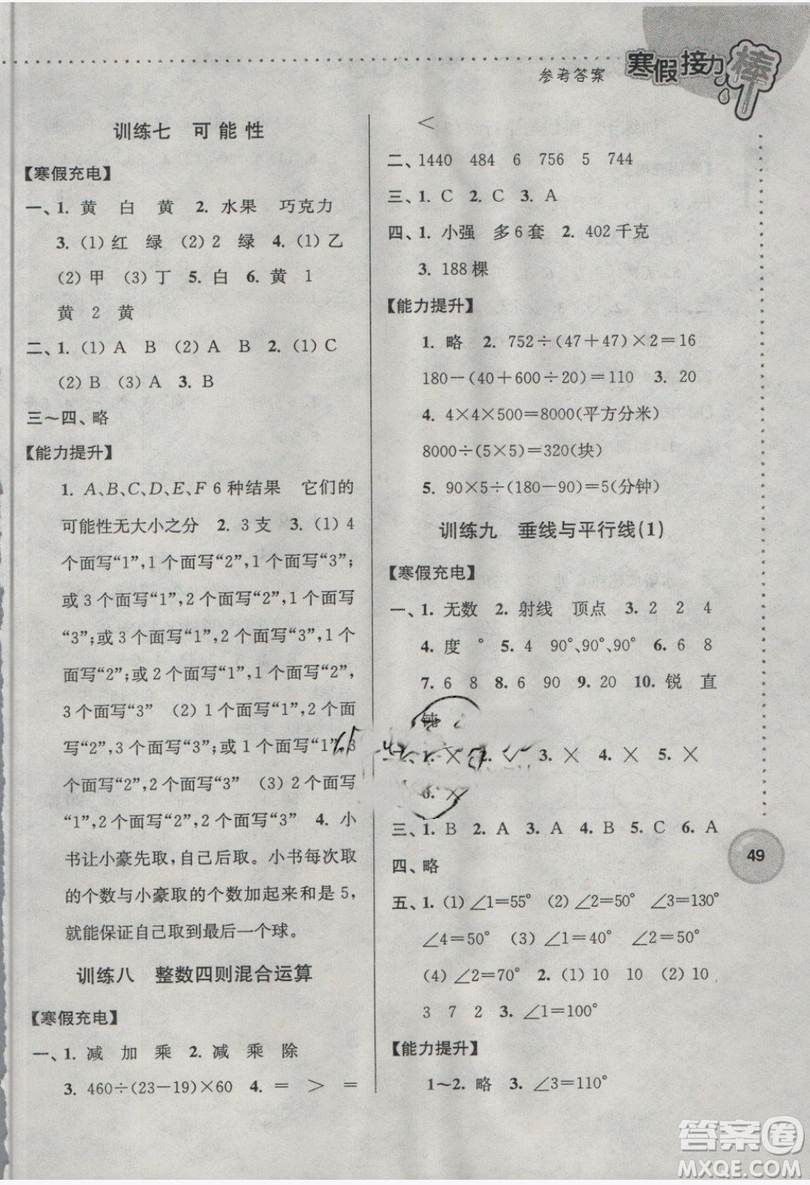 参考答案
寒假接力棒
训练七　可能性
【寒假充电】
一、1. 黄　白　黄　2. 水果　巧克力
3. (1) 红　绿　(2) 2　绿　4. (1) 乙
(2) 甲　(3) 丁　5. 白　6. 黄　1
黄　2　黄
二、1. (1) A　B　(2) A　B　2. (1) C
(2) B　(3) A　3. B
三～四、略
【能力提升】
1. A、B、C、D、E、F 6 种结果　它们的
可能性无大小之分　2. 3 支　3. (1) 4
个面写“1”,1 个面写“2”,1 个面写“3”;
或 3 个面写“1”,1 个面写“2”,2 个面写
“3”;或 3 个面写“1”,2 个面写“2”,1 个
面写“3”;或 2 个面写“1”,2 个面写“2”,
2 个面写“3”　(2) 1 个面写“1”,2 个面
写“2”,3 个面写“3”;或 1 个面写“1”,3
个面写“2”,2 个面写“3”　(3) 2 个面写
“1”,2 个面写“2”,2 个面写“3”　4. 小
书让小豪先取,自己后取。小书每次取
的个数与小豪取的个数加起来和是 5,
就能保证自己取到最后一个球。
训练八　整数四则混合运算
【寒假充电】
一、1. 减　加　乘　2. 减　乘　除
3. 460÷(23－19)×60　4. ＝　＞　＝
＜
二、1440　484　6　756　5　744
三、1. C　2. C　3. A
四、1. 小强　多 6 套　2. 402 千克
3. 188 棵
【能力提升】
1. 略　2. 752÷(47＋47)×2＝16
180－(40＋500÷10)×2＝0　3. 20
4. 4×4×500＝8000(平方分米)
8000÷(5×5)＝320(块)
5. 90×5÷90＝5(分钟)
训练九　垂线与平行线(1)
【寒假充电】
一、1. 无数　2. 射线　顶点　3. 2　2　4
4. 度　°　5. 4　90°、90°、90°　6. 6　8
7. 6　8　8. 6　90　9. 20　10. 锐　直
钝
1. ×　2. ✓　3. ×　4. ×　5. ×
6. ×
三、1. B　2. A　3. A　4. B　5. C　6. A
四、略
五、1. (1) ∠1＝55°　(2) ∠2＝50°　∠3＝130°
∠4＝50°　(3) ∠1＝20°　∠2＝50°
(4) 20°　70°　2. (1) 10　10　(2) 10
3　7　2　3. ∠1＝100°
【能力提升】
1～2. 略　3. ∠3＝110°
49
答案圈
MXQE.COM